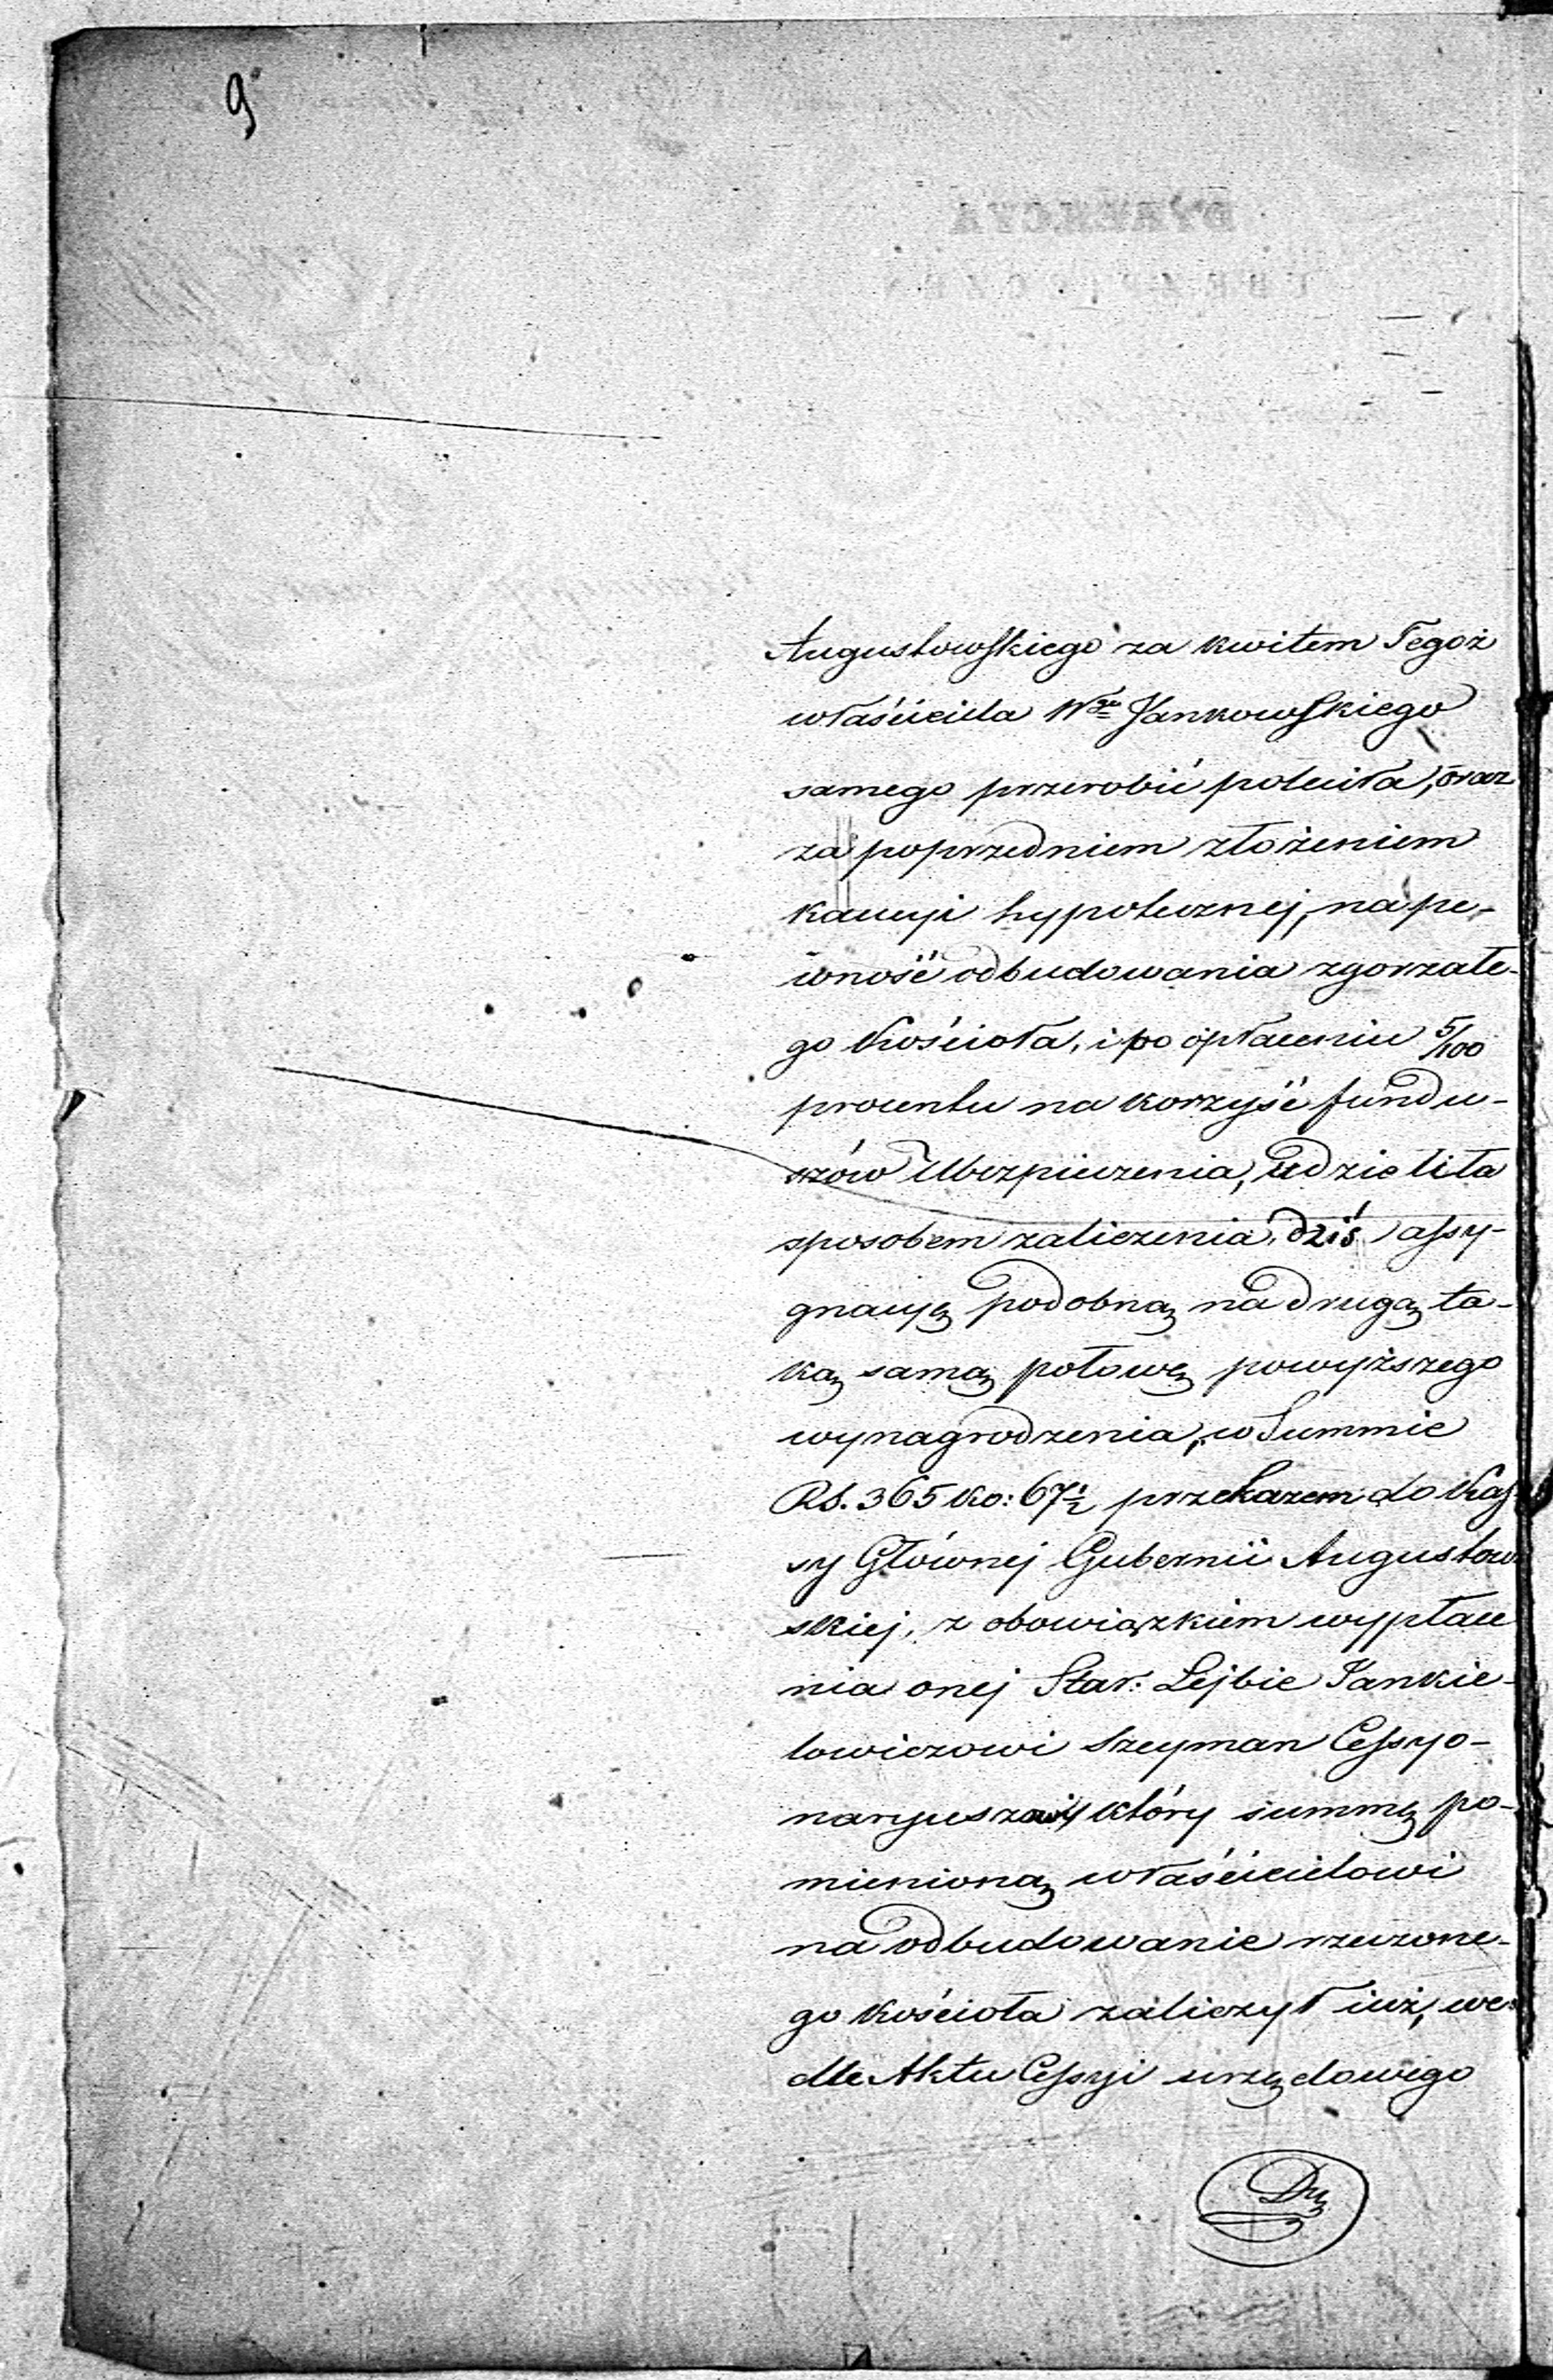 9
Augustowskiego za kwitem Tegoż
właściciela Wgo Jankowskiego
samego przerobić poleciła, oraz
za poprzedniem złożeniem
kaucyi hypotecznej, na pe-
wność odbudowania zgorzałe-
go Kościoła, i po opłaceniu 5/100
procentu na korzyść fundu-
szów Ubezpieczenia, udzieliła
sposobem zaliczenia, dziś assy-
gnacyę podobną na drugą ta-
ką samą połowę powyższego
wynagrodzenia, w Summie
RS. 365 ko: 67½ przekazem do Kas
sy Głównej Gubernii Augustow
skiej, z obowiązkiem wypłace
nia onej Star: Lejbie Jankie-
lowiczowi Szeyman Cessyo-
naryuszowi, który summę po-
mienioną właścicielowi
na odbudowanie rzeczone-
go kościoła zaliczył iuż, we-
dle Aktu Cessyi urzędowego